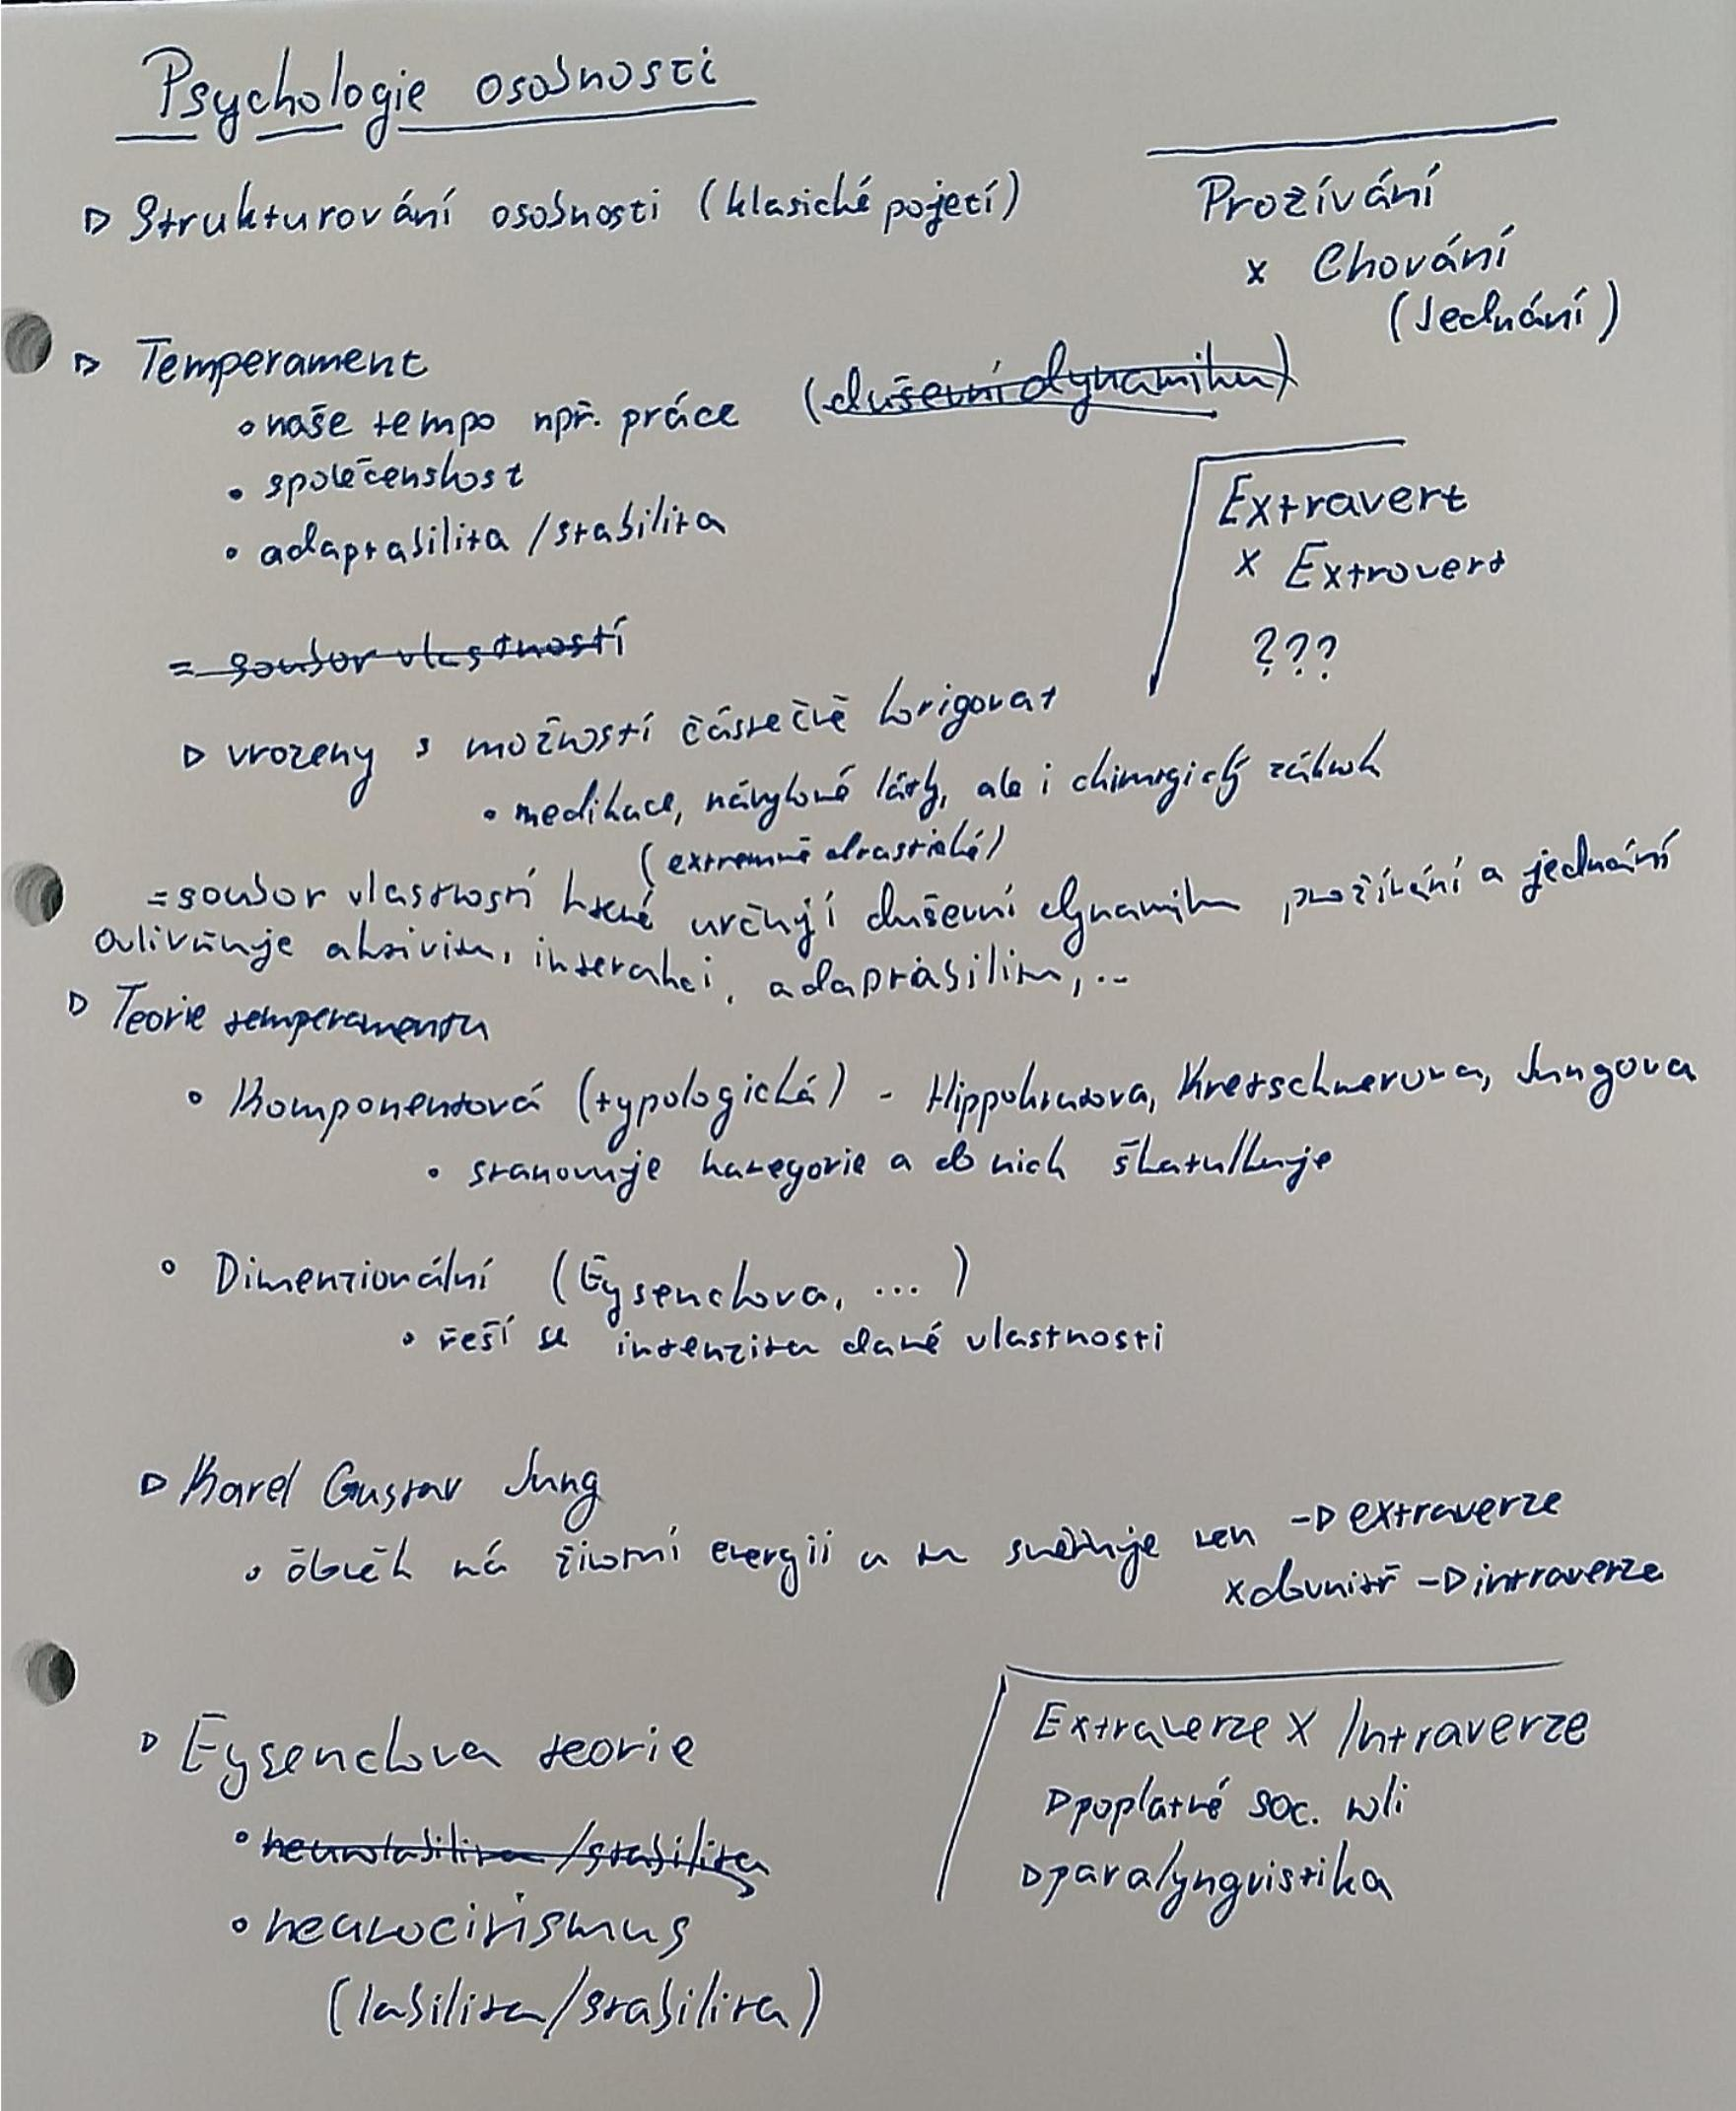 Psychologie osobnosti
▷ Strukturování osobnosti (klasické pojetí)
Prožívání
x Chování
(Jednání)
▷ Temperament
• naše tempo např. práce (duševní dynamiku)
• společenskost
• adaptabilita / stabilita
Extravert
x Extrovert
???
= soubor vlastností
▷ vrozený s možností částečně korigovat
• medikace, návykové látky, ale i chirurgický zákrok
(extremně drastické)
= soubor vlastností které určují duševní dynamiku prožívání a jednání
Ovlivňuje aktivitu, interakci, adaptabilitu, ...
▷ Teorie temperamentu
• Komponentová (typologická) - Hippokratova, Kretschmerova, Jungova
• stanovuje kategorie a do nich škatulkuje
• Dimenzionální (Eysenckova, ...)
• řeší se intenzita dané vlastnosti
▷ Karel Gustav Jung
• člověk má životní energii a tu směřuje ven -▷ extraverze
x dovnitř -▷ intraverze
▷ Eysenckova teorie
• neurolabilita / stabilita
• neurocitismus
(labilita/stabilita)
Extraverze X Intraverze
▷ poplatné soc. roli
▷ paralyngvistika